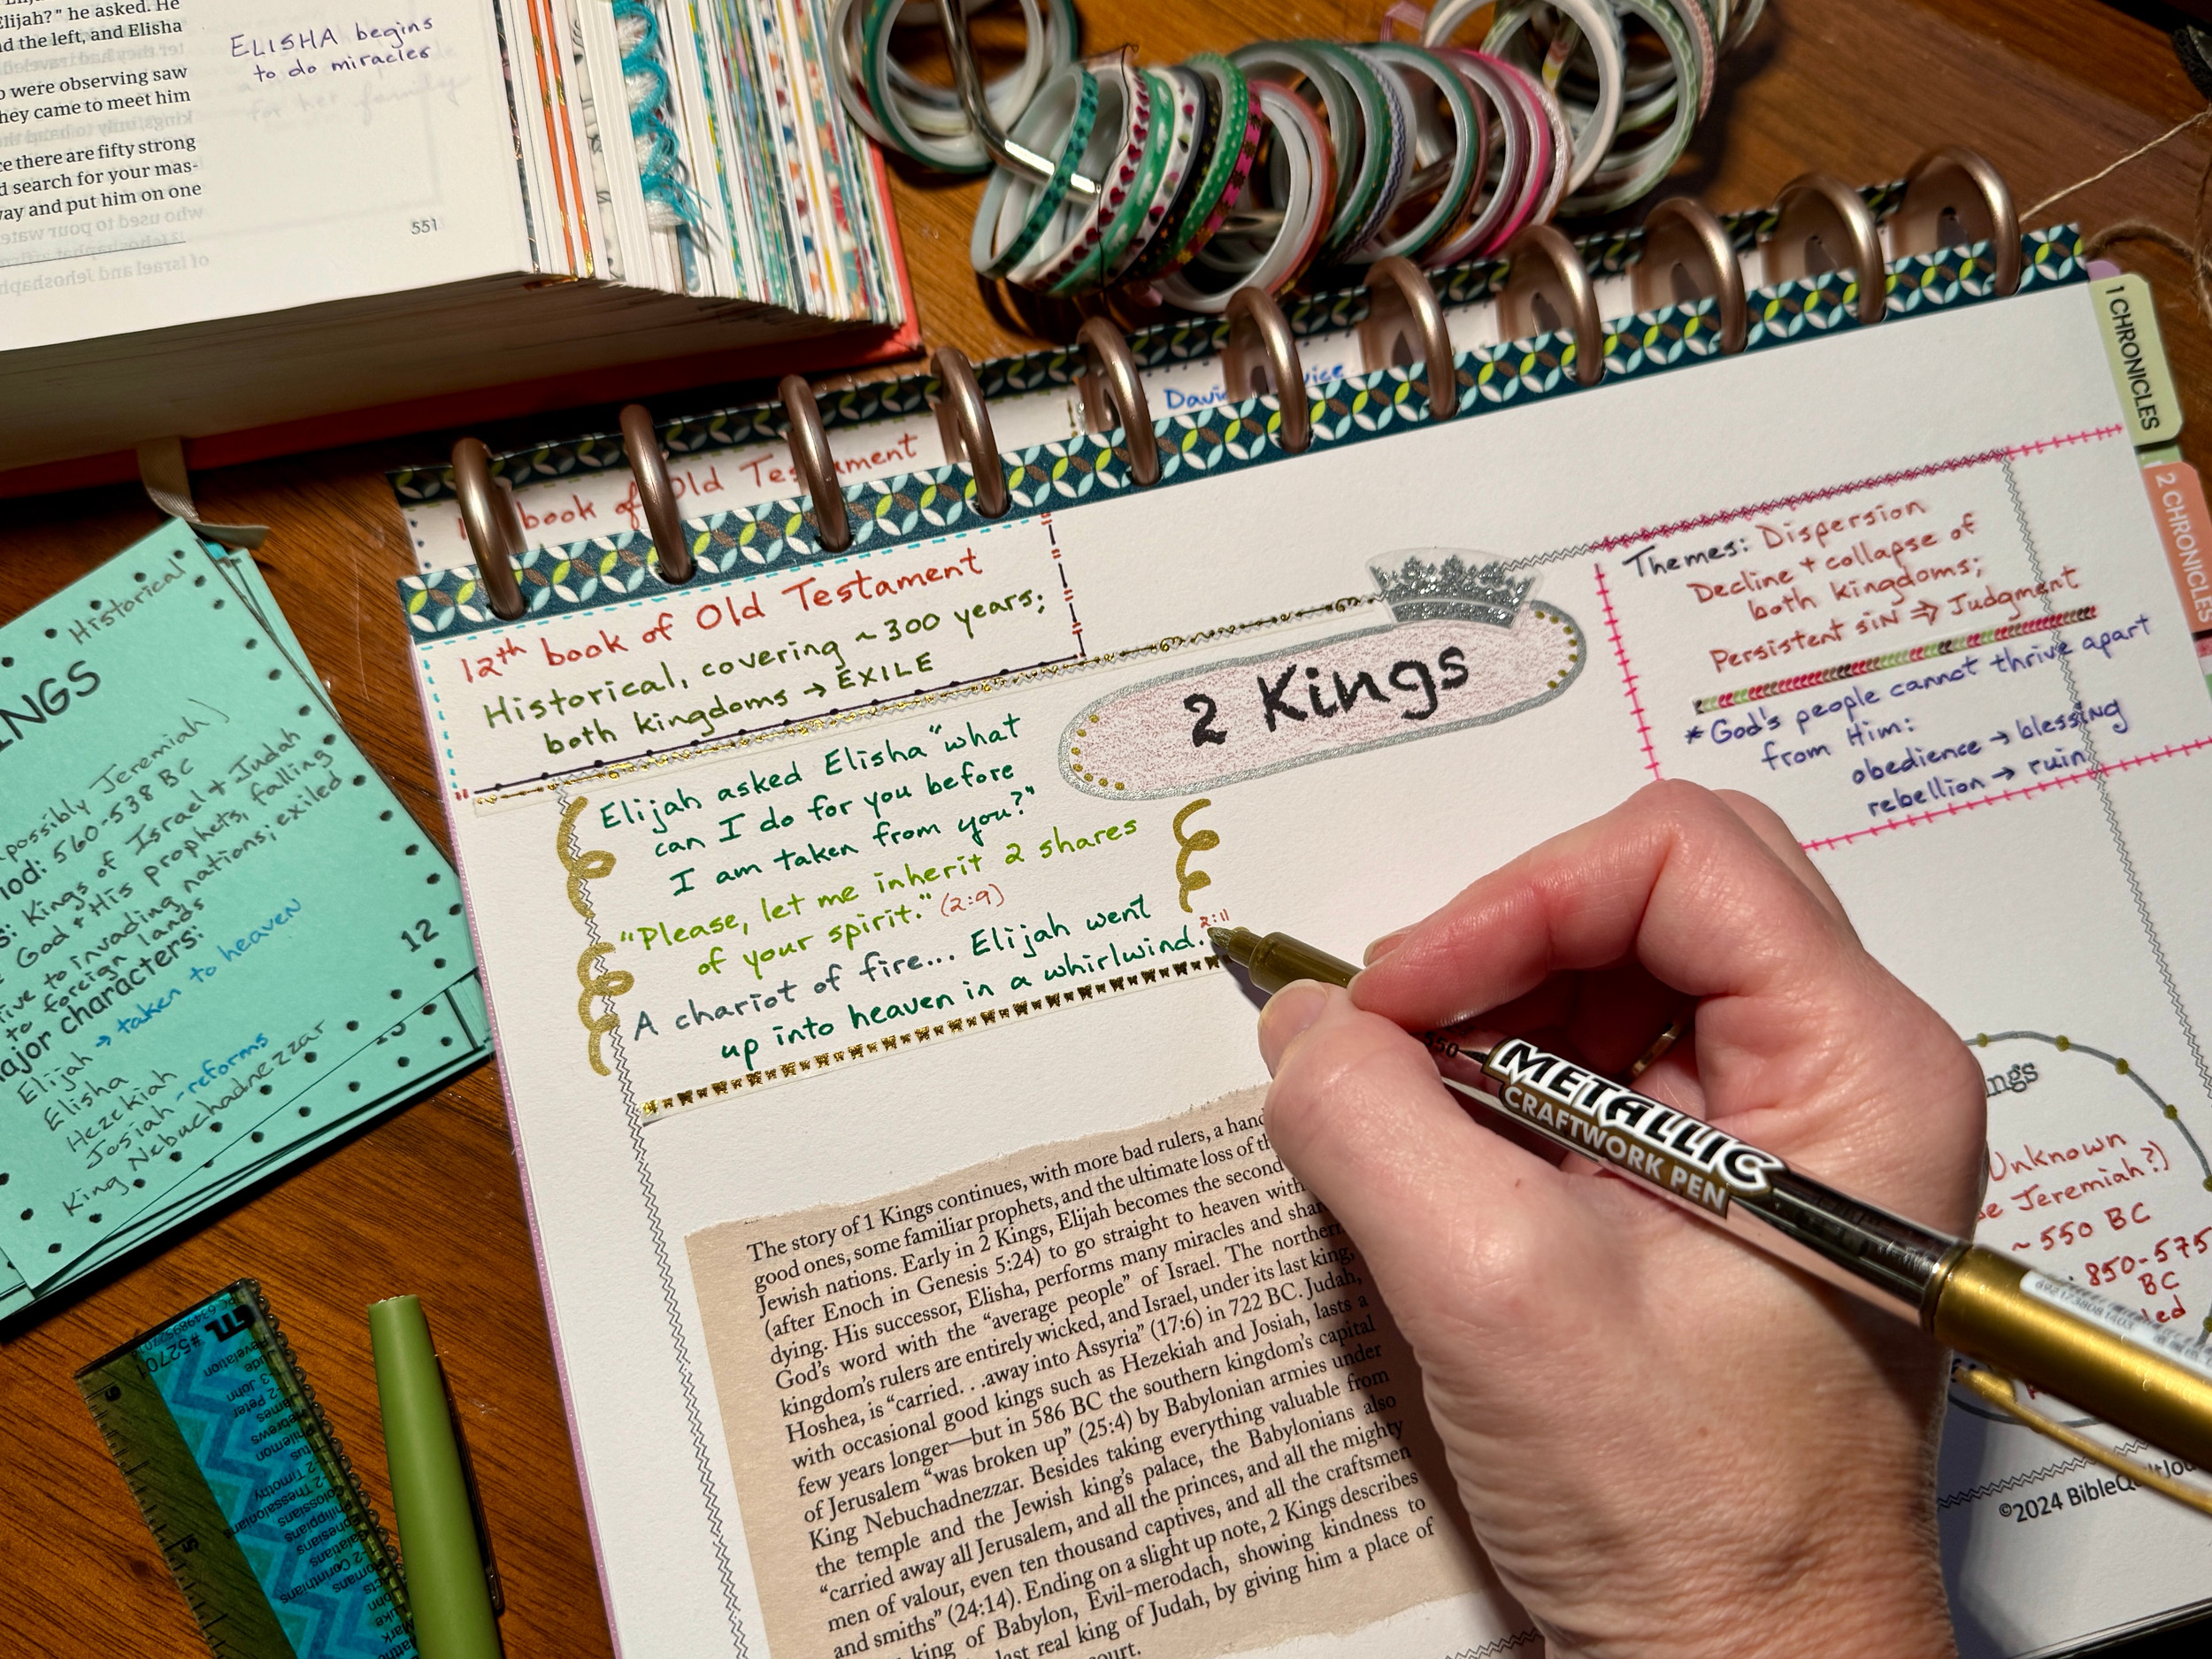 Elijah?" he asked. He
and the left, and Elisha
were observing saw
they came to meet him
there are fifty strong
search for your mas-
way and put him on one
551
ELISHA begins
to do miracles
for her family
1 CHRONICLES
2 CHRONICLES
book of Old Testament
12th book of Old Testament
Historical, covering ~300 years;
both kingdoms → EXILE
2 Kings
Themes: Dispersion
Decline + collapse of
both kingdoms;
Persistent siN ⇒ Judgment
*God's people cannot thrive apart
from Him:
obedience → blessing
rebellion → ruin
Elijah asked Elisha "what
can I do for you before
I am taken from you?"
"Please, let me inherit 2 shares
of your spirit." (2:9)
A chariot of fire... Elijah went
up into heaven in a whirlwind. 2:11
The story of 1 Kings continues, with more bad rulers, a hand
good ones, some familiar prophets, and the ultimate loss of th
Jewish nations. Early in 2 Kings, Elijah becomes the second
(after Enoch in Genesis 5:24) to go straight to heaven with
dying. His successor, Elisha, performs many miracles and shar
God's word with the "average people" of Israel. The northern
kingdom's rulers are entirely wicked, and Israel, under its last king,
Hoshea, is "carried. . .away into Assyria" (17:6) in 722 BC. Judah,
with occasional good kings such as Hezekiah and Josiah, lasts a
few years longer—but in 586 BC the southern kingdom's capital
of Jerusalem "was broken up" (25:4) by Babylonian armies under
King Nebuchadnezzar. Besides taking everything valuable from
the temple and the Jewish king's palace, the Babylonians also
"carried away all Jerusalem, and all the princes, and all the mighty
men of valour, even ten thousand captives, and all the craftsmen
and smiths" (24:14). Ending on a slight up note, 2 Kings describes
king of Babylon, Evil-merodach, showing kindness to
last real king of Judah, by giving him a place of
court.
METALLIC
CRAFTWORK PEN
Unknown
Jeremiah?)
~550 BC
850-575
BC
©2024
Historical
possibly Jeremiah)
560-538 BC
Kings of Israel + Judah
God + His prophets, falling
to invading nations; exiled
to foreign lands
major characters:
Elijah → taken to heaven
Elisha
Hezekiah
Josiah - reforms
King Nebuchadnezzar
12
#5270
Revelation
Jude
3 John
2 Peter
James
Hebrews
Philemon
Titus
2 Timothy
2 Thessalonians
Colossians
Philippians
Ephesians
Galatians
2 Corinthians
Romans
Acts
John
Luke
Mark